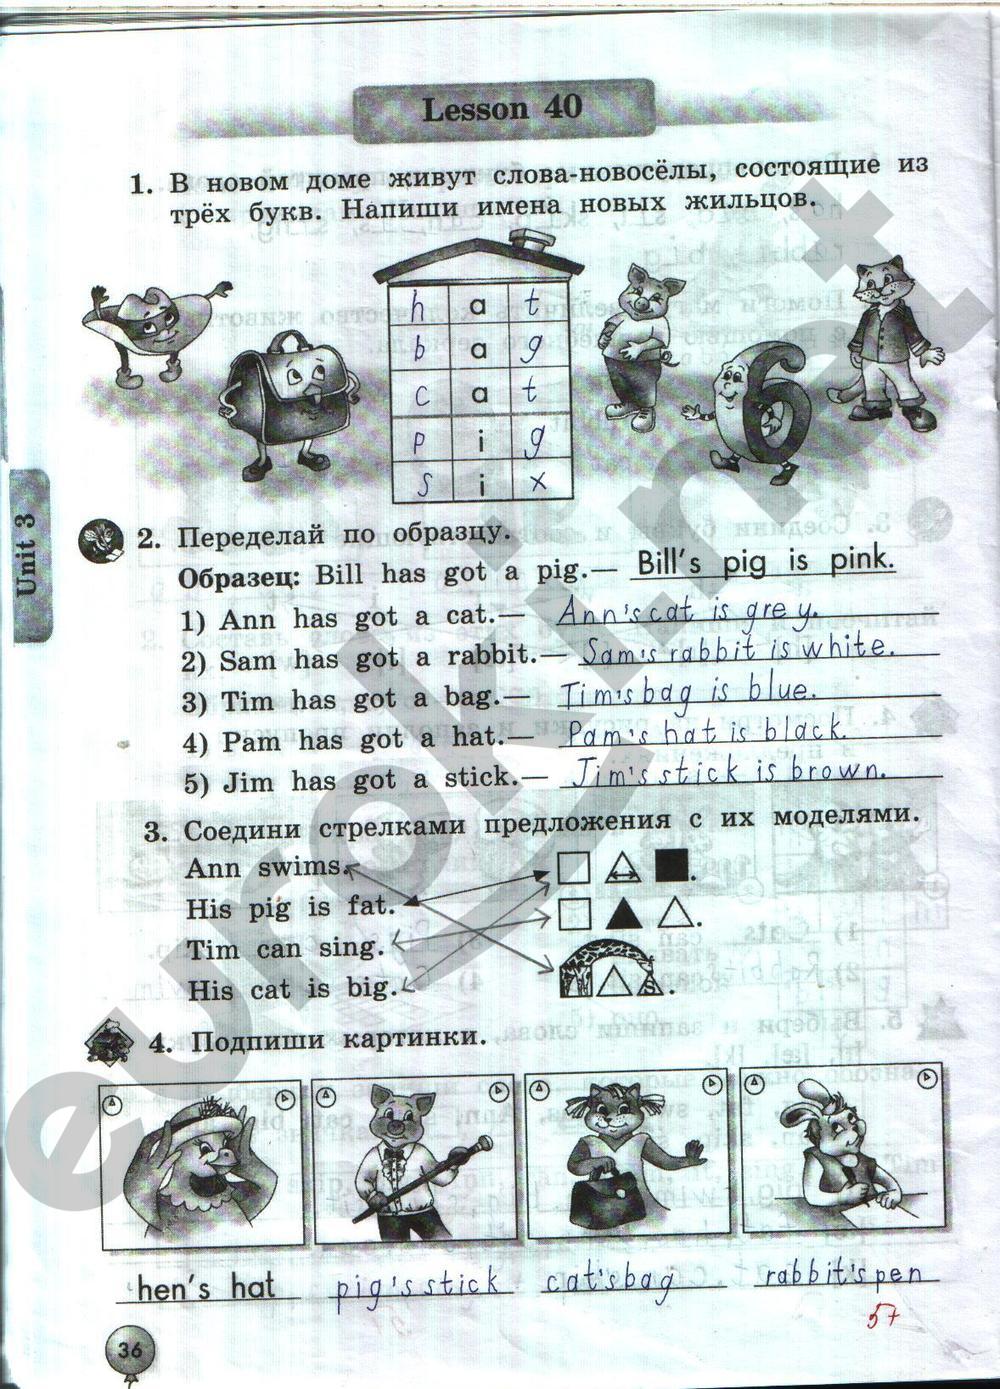 Lesson 40
1. В новом доме живут слова-новосёлы, состоящие из
трёх букв. Напиши имена новых жильцов.
h a t
b a g
c a t
p i g
s i x
Unit 3
2. Переделай по образцу.
Образец: Bill has got a pig.— Bill's pig is pink.
1) Ann has got a cat.— Ann's cat is grey.
2) Sam has got a rabbit.— Sam's rabbit is white.
3) Tim has got a bag. — Tim's bag is blue.
4) Pam has got a hat.— Pam's hat is black.
5) Jim has got a stick.— Jim's stick is brown.
3. Соедини стрелками предложения с их моделями.
Ann swims.
His pig is fat.
Tim can sing.
His cat is big.
4. Подпиши картинки.
hen's hat pig's stick cat's bag rabbit's pen
5+
36
eurokI.net